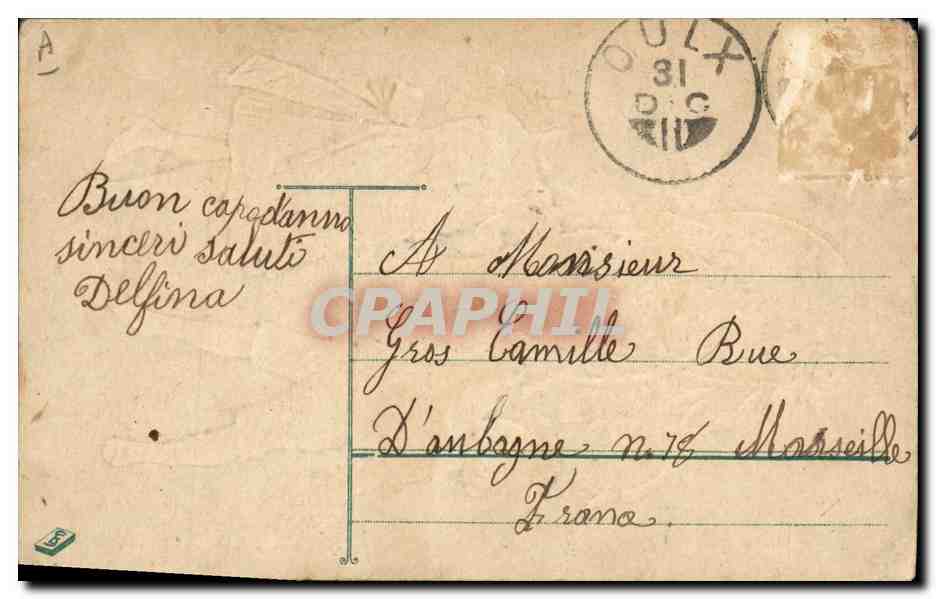 A
OULX
31
DIC
11
Buon capodanno
sinceri saluti
Delfina
A Monsieur
Gros Camille Rue
D'aubagne n. 78 Marseille
Franc
CPARPHIL